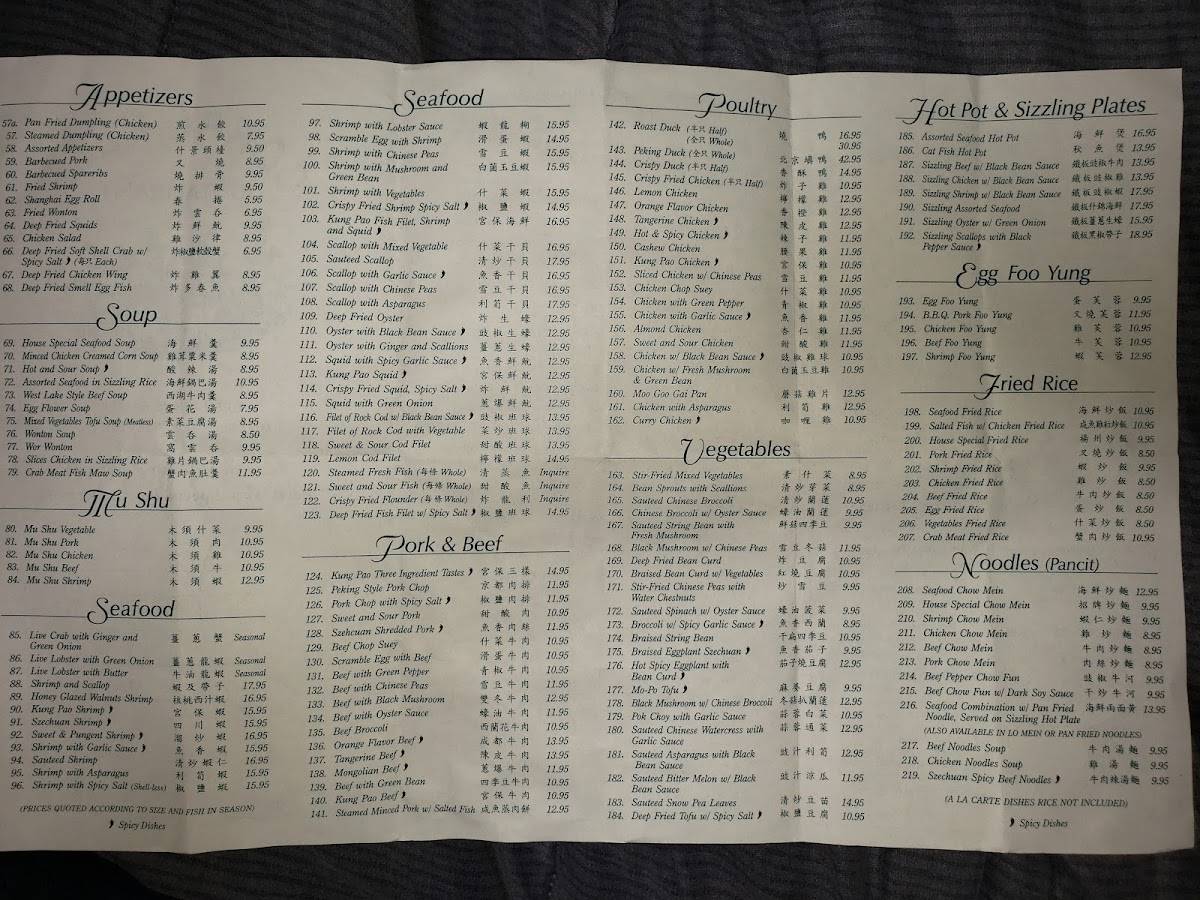 Appetizers
57a. Pan Fried Dumpling (Chicken) 煎水餃 10.95
57. Steamed Dumpling (Chicken) 蒸水餃 7.95
58. Assorted Appetizers 什景頭檯 9.50
59. Barbecued Pork 叉燒 8.95
60. Barbecued Spareribs 燒排骨 9.95
61. Fried Shrimp 炸蝦 9.50
62. Shanghai Egg Roll 春捲 5.95
63. Fried Wonton 炸雲吞 6.95
64. Deep Fried Squids 炸鮮魷 9.95
65. Chicken Salad 雞沙律 8.95
66. Deep Fried Soft Shell Crab w/ 炸椒鹽軟殼蟹 6.95
Spicy Salt (每只 Each)
67. Deep Fried Chicken Wing 炸雞翼 8.95
68. Deep Fried Smell Egg Fish 炸多春魚 8.95
Soup
69. House Special Seafood Soup 海鮮羹 9.95
70. Minced Chicken Creamed Corn Soup 雞茸粟米羹 8.95
71. Hot and Sour Soup 酸辣湯 8.95
72. Assorted Seafood in Sizzling Rice 海鮮鍋巴湯 10.95
73. West Lake Style Beef Soup 西湖牛肉羹 8.95
74. Egg Flower Soup 蛋花湯 7.95
75. Mixed Vegetables Tofu Soup (Meatless) 素菜豆腐湯 8.95
76. Wonton Soup 雲吞湯 8.50
77. Wor Wonton 窩雲吞 9.95
78. Slices Chicken in Sizzling Rice 雞片鍋巴湯 9.95
79. Crab Meat Fish Maw Soup 蟹肉魚肚羹 11.95
Mu Shu
80. Mu Shu Vegetable 木須什菜 9.95
81. Mu Shu Pork 木須肉 10.95
82. Mu Shu Chicken 木須雞 10.95
83. Mu Shu Beef 木須牛 10.95
84. Mu Shu Shrimp 木須蝦 12.95
Seafood
85. Live Crab with Ginger and 薑蔥蟹 Seasonal
Green Onion
86. Live Lobster with Green Onion 薑蔥龍蝦 Seasonal
87. Live Lobster with Butter 牛油龍蝦 Seasonal
88. Shrimp and Scallop 蝦及帶子 17.95
89. Honey Glazed Walnuts Shrimp 核桃西汁蝦 16.95
90. Kung Pao Shrimp 宮保蝦 15.95
91. Szechuan Shrimp 四川蝦 15.95
92. Sweet & Pungent Shrimp 溜炒蝦 16.95
93. Shrimp with Garlic Sauce 魚香蝦 15.95
94. Sauteed Shrimp 清炒蝦仁 16.95
95. Shrimp with Asparagus 利筍蝦 15.95
96. Shrimp with Spicy Salt (Shell-less) 椒鹽蝦 15.95
(PRICES QUOTED ACCORDING TO SIZE AND FISH IN SEASON)
Spicy Dishes
Seafood
97. Shrimp with Lobster Sauce 蝦龍糊 15.95
98. Scramble Egg with Shrimp 滑蛋蝦 14.95
99. Shrimp with Chinese Peas 雪豆蝦 15.95
100. Shrimp with Mushroom and 白菌玉豆蝦 15.95
Green Bean
101. Shrimp with Vegetables 什菜蝦 15.95
102. Crispy Fried Shrimp Spicy Salt 椒鹽蝦 16.95
103. Kung Pao Fish Filet, Shrimp 宮保海鮮 16.95
and Squid
104. Scallop with Mixed Vegetable 什菜干貝 16.95
105. Sauteed Scallop 清炒干貝 17.95
106. Scallop with Garlic Sauce 魚香干貝 16.95
107. Scallop with Chinese Peas 雪豆干貝 16.95
108. Scallop with Asparagus 利筍干貝 17.95
109. Deep Fried Oyster 炸生蠔 12.95
110. Oyster with Black Bean Sauce 豉椒生蠔 12.95
111. Oyster with Ginger and Scallions 薑蔥生蠔 12.95
112. Squid with Spicy Garlic Sauce 魚香鮮魷 12.95
113. Kung Pao Squid 宮保鮮魷 12.95
114. Crispy Fried Squid, Spicy Salt 炸鮮魷 12.95
115. Squid with Green Onion 蔥爆鮮魷 12.95
116. Filet of Rock Cod w/ Black Bean Sauce 豉椒班球 13.95
117. Filet of Rock Cod with Vegetable 菜炒班球 13.95
118. Sweet & Sour Cod Filet 甜酸班球 13.95
119. Lemon Cod Filet 檸檬班球 14.95
120. Steamed Fresh Fish (每條 Whole) 清蒸魚 Inquire
121. Sweet and Sour Fish (每條 Whole) 甜酸魚 Inquire
122. Crispy Fried Flounder (每條 Whole) 炸龍利 Inquire
123. Deep Fried Fish Filet w/ Spicy Salt 椒鹽班球 14.95
Pork & Beef
124. Kung Pao Three Ingredient Tastes 宮保三樣 14.95
125. Peking Style Pork Chop 京都肉排 11.95
126. Pork Chop with Spicy Salt 椒鹽肉排 11.95
127. Sweet and Sour Pork 甜酸肉 10.95
128. Szechuan Shredded Pork 魚香肉絲 11.95
129. Beef Chop Suey 什菜牛肉 10.95
130. Scramble Egg with Beef 滑蛋牛肉 10.95
131. Beef with Green Pepper 青椒牛肉 10.95
132. Beef with Chinese Peas 雪豆牛肉 11.95
133. Beef with Black Mushroom 雙冬牛肉 12.95
134. Beef with Oyster Sauce 蠔油牛肉 11.95
135. Beef Broccoli 西蘭花牛肉 10.95
136. Orange Flavor Beef 成都牛肉 13.95
137. Tangerine Beef 陳皮牛肉 13.95
138. Mongolian Beef 蔥爆牛肉 11.95
139. Beef with Green Bean 四季豆牛肉 10.95
140. Kung Pao Beef 宮保牛肉 10.95
141. Steamed Minced Pork w/ Salted Fish 咸魚蒸肉餅 12.95
Poultry
142. Roast Duck (半只 Half) 燒鴨 16.95
(全只 Whole) 30.95
143. Peking Duck (全只 Whole) 北京填鴨 42.95
144. Crispy Duck (半只 Half) 香酥鴨 14.95
145. Crispy Fried Chicken (半只 Half) 炸子雞 10.95
146. Lemon Chicken 檸檬雞 12.95
147. Orange Flavor Chicken 香橙雞 12.95
148. Tangerine Chicken 陳皮雞 12.95
149. Hot & Spicy Chicken 辣子雞 11.95
150. Cashew Chicken 腰果雞 11.95
151. Kung Pao Chicken 宮保雞 10.95
152. Sliced Chicken w/ Chinese Peas 雪豆雞 11.95
153. Chicken Chop Suey 什菜雞 10.95
154. Chicken with Green Pepper 青椒雞 10.95
155. Chicken with Garlic Sauce 魚香雞 11.95
156. Almond Chicken 杏仁雞 11.95
157. Sweet and Sour Chicken 甜酸雞 11.95
158. Chicken w/ Black Bean Sauce 豉椒雞球 10.95
159. Chicken w/ Fresh Mushroom 白菌玉豆雞 10.95
& Green Bean
160. Moo Goo Gai Pan 蘑菇雞片 12.95
161. Chicken with Asparagus 利筍雞 12.95
162. Curry Chicken 咖喱雞 10.95
Vegetables
163. Stir-Fried Mixed Vegetables 素什菜 8.95
164. Bean Sprouts with Scallions 清炒芽菜 8.95
165. Sauteed Chinese Broccoli 清炒蘭蓮 10.95
166. Chinese Broccoli w/ Oyster Sauce 蠔油蘭蓮 9.95
167. Sauteed String Bean with 鮮菇四季豆 9.95
Fresh Mushroom
168. Black Mushroom w/ Chinese Peas 雪豆冬菇 11.95
169. Deep Fried Bean Curd 炸豆腐 10.95
170. Braised Bean Curd w/ Vegetables 紅燒豆腐 10.95
171. Stir-Fried Chinese Peas with 炒雪豆 9.95
Water Chestnuts
172. Sauteed Spinach w/ Oyster Sauce 蠔油菠菜 9.95
173. Broccoli w/ Spicy Garlic Sauce 魚香西蘭 8.95
174. Braised String Bean 干扁四季豆 10.95
175. Braised Eggplant Szechuan 魚香茄子 9.95
176. Hot Spicy Eggplant with 茄子燒豆腐 12.95
Bean Curd
177. Mo-Po Tofu 麻婆豆腐 9.95
178. Black Mushroom w/ Chinese Broccoli 冬菇扒蘭蓮 12.95
179. Pok Choy with Garlic Sauce 蒜蓉白菜 10.95
180. Sauteed Chinese Watercress with 蒜蓉通菜 12.95
Garlic Sauce
181. Sauteed Asparagus with Black 豉汁利筍 12.95
Bean Sauce
182. Sauteed Bitter Melon w/ Black 豉汁涼瓜 11.95
Bean Sauce
183. Sauteed Snow Pea Leaves 清炒豆苗 14.95
184. Deep Fried Tofu w/ Spicy Salt 椒鹽豆腐 10.95
Hot Pot & Sizzling Plates
185. Assorted Seafood Hot Pot 海鮮煲 16.95
186. Cat Fish Hot Pot 秋魚煲 13.95
187. Sizzling Beef w/ Black Bean Sauce 鐵板豉椒牛肉 13.95
188. Sizzling Chicken w/ Black Bean Sauce 鐵板豉椒雞 13.95
189. Sizzling Shrimp w/ Black Bean Sauce 鐵板豉椒蝦 17.95
190. Sizzling Assorted Seafood 鐵板什錦海鮮 17.95
191. Sizzling Oyster w/ Green Onion 鐵板薑蔥生蠔 15.95
192. Sizzling Scallops with Black 鐵板黑椒帶子 18.95
Pepper Sauce
Egg Foo Yung
193. Egg Foo Yung 蛋芙蓉 9.95
194. B.B.Q. Pork Foo Yung 叉燒芙蓉 11.95
195. Chicken Foo Yung 雞芙蓉 10.95
196. Beef Foo Yung 牛芙蓉 10.95
197. Shrimp Foo Yung 蝦芙蓉 12.95
Fried Rice
198. Seafood Fried Rice 海鮮炒飯 10.95
199. Salted Fish w/ Chicken Fried Rice 咸魚雞粒炒飯 10.95
200. House Special Fried Rice 揚州炒飯 9.95
201. Pork Fried Rice 叉燒炒飯 8.50
202. Shrimp Fried Rice 蝦炒飯 9.95
203. Chicken Fried Rice 雞炒飯 8.50
204. Beef Fried Rice 牛肉炒飯 8.50
205. Egg Fried Rice 蛋炒飯 8.50
206. Vegetables Fried Rice 什菜炒飯 8.50
207. Crab Meat Fried Rice 蟹肉炒飯 10.95
Noodles (Pancit)
208. Seafood Chow Mein 海鮮炒麵 12.95
209. House Special Chow Mein 招牌炒麵 9.95
210. Shrimp Chow Mein 蝦仁炒麵 9.95
211. Chicken Chow Mein 雞炒麵 8.95
212. Beef Chow Mein 牛肉炒麵 8.95
213. Pork Chow Mein 肉絲炒麵 8.95
214. Beef Pepper Chow Fun 豉椒牛河 9.95
215. Beef Chow Fun w/ Dark Soy Sauce 干炒牛河 9.95
216. Seafood Combination w/ Pan Fried 海鮮兩面黃 13.95
Noodle, Served on Sizzling Hot Plate
(ALSO AVAILABLE IN LO MEIN OR PAN FRIED NOODLES)
217. Beef Noodles Soup 牛肉湯麵 9.95
218. Chicken Noodles Soup 雞湯麵 9.95
219. Szechuan Spicy Beef Noodles 牛肉辣湯麵 9.95
(A LA CARTE DISHES RICE NOT INCLUDED)
Spicy Dishes